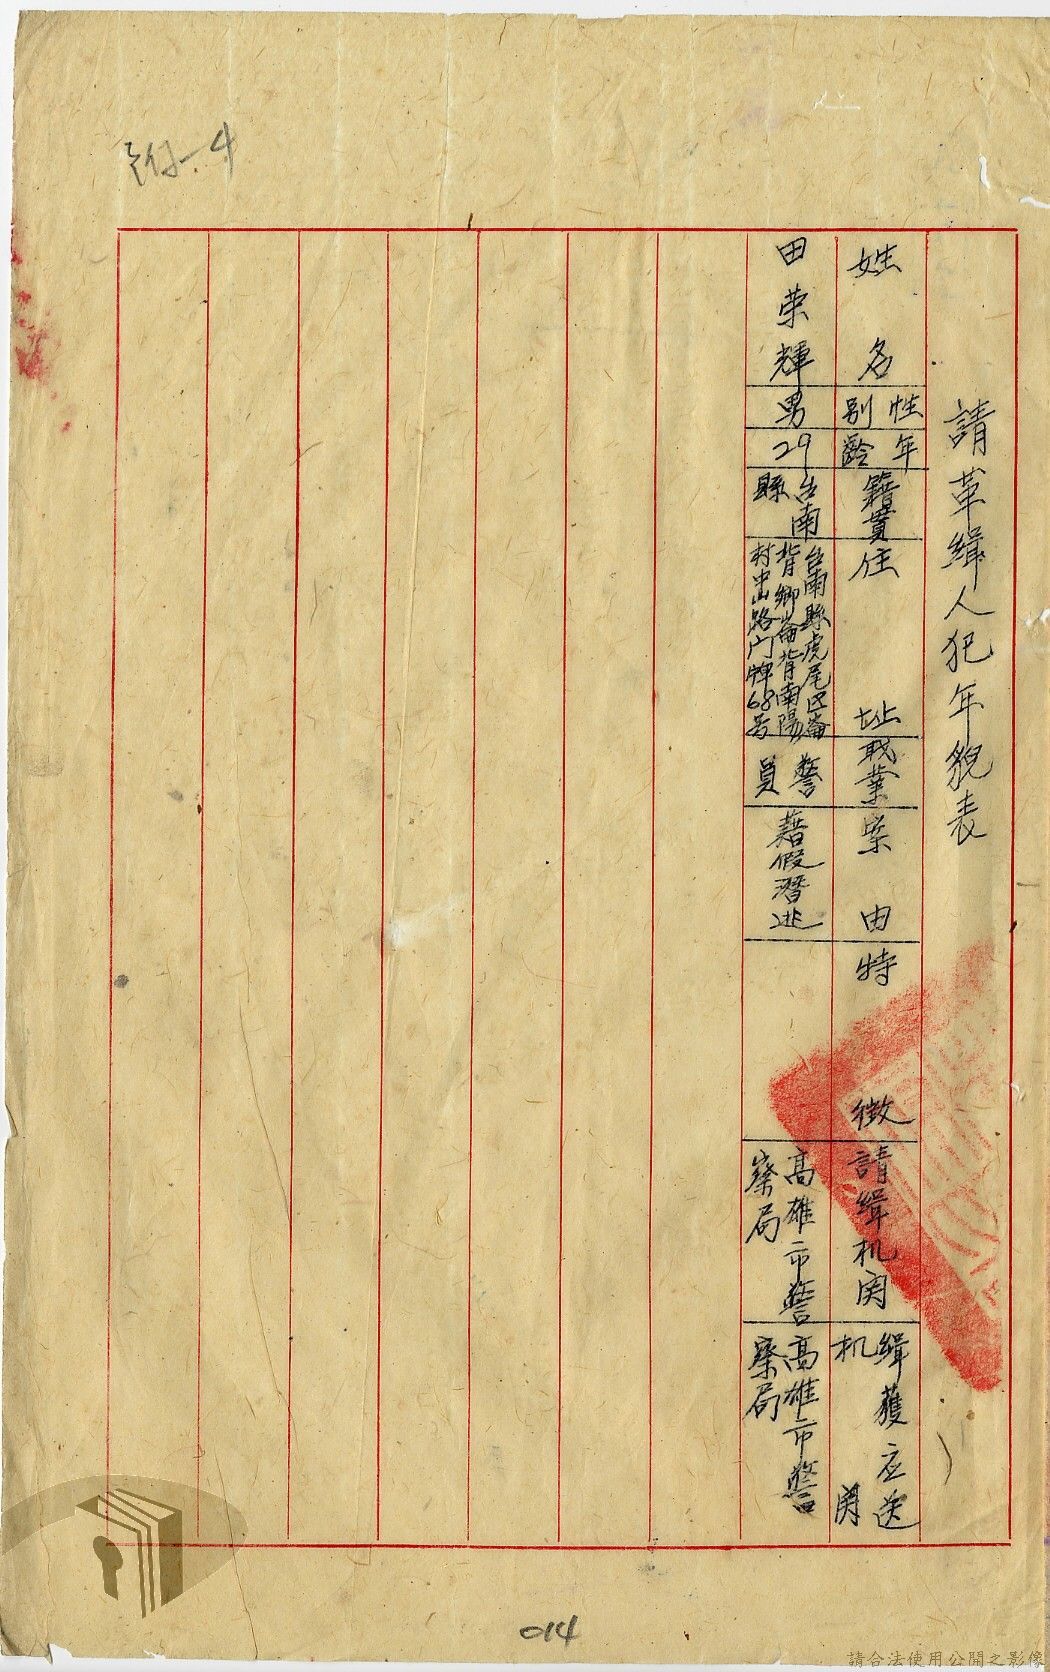 附-4
請革緝人犯年貌表
姓名
性別
年齡
籍貫
住址
職業
案由
特徵
請缉机関
緝獲应送机関
田荣輝
男
29
台南縣
台南縣虎尾区崙
背鄉崙背南陽
村中山路門牌68号
警員
藉假潛逃
高雄市警察局
高雄市警察局
014
請合法使用公開之影像